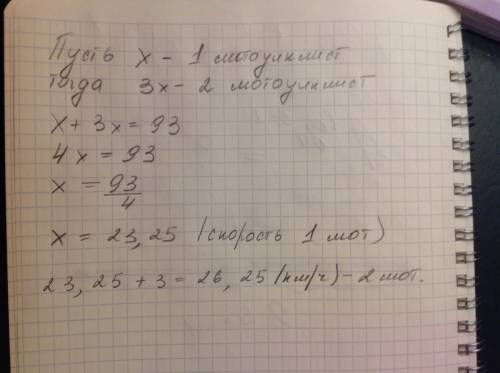 Пусть x - 1 мотоциклист
тогда 3x - 2 мотоциклист
x + 3x = 93
4x = 93
x = 93/4
x = 23,25 (скорость 1 мот)
23,25 + 3 = 26,25 (км/ч) - 2 мот.